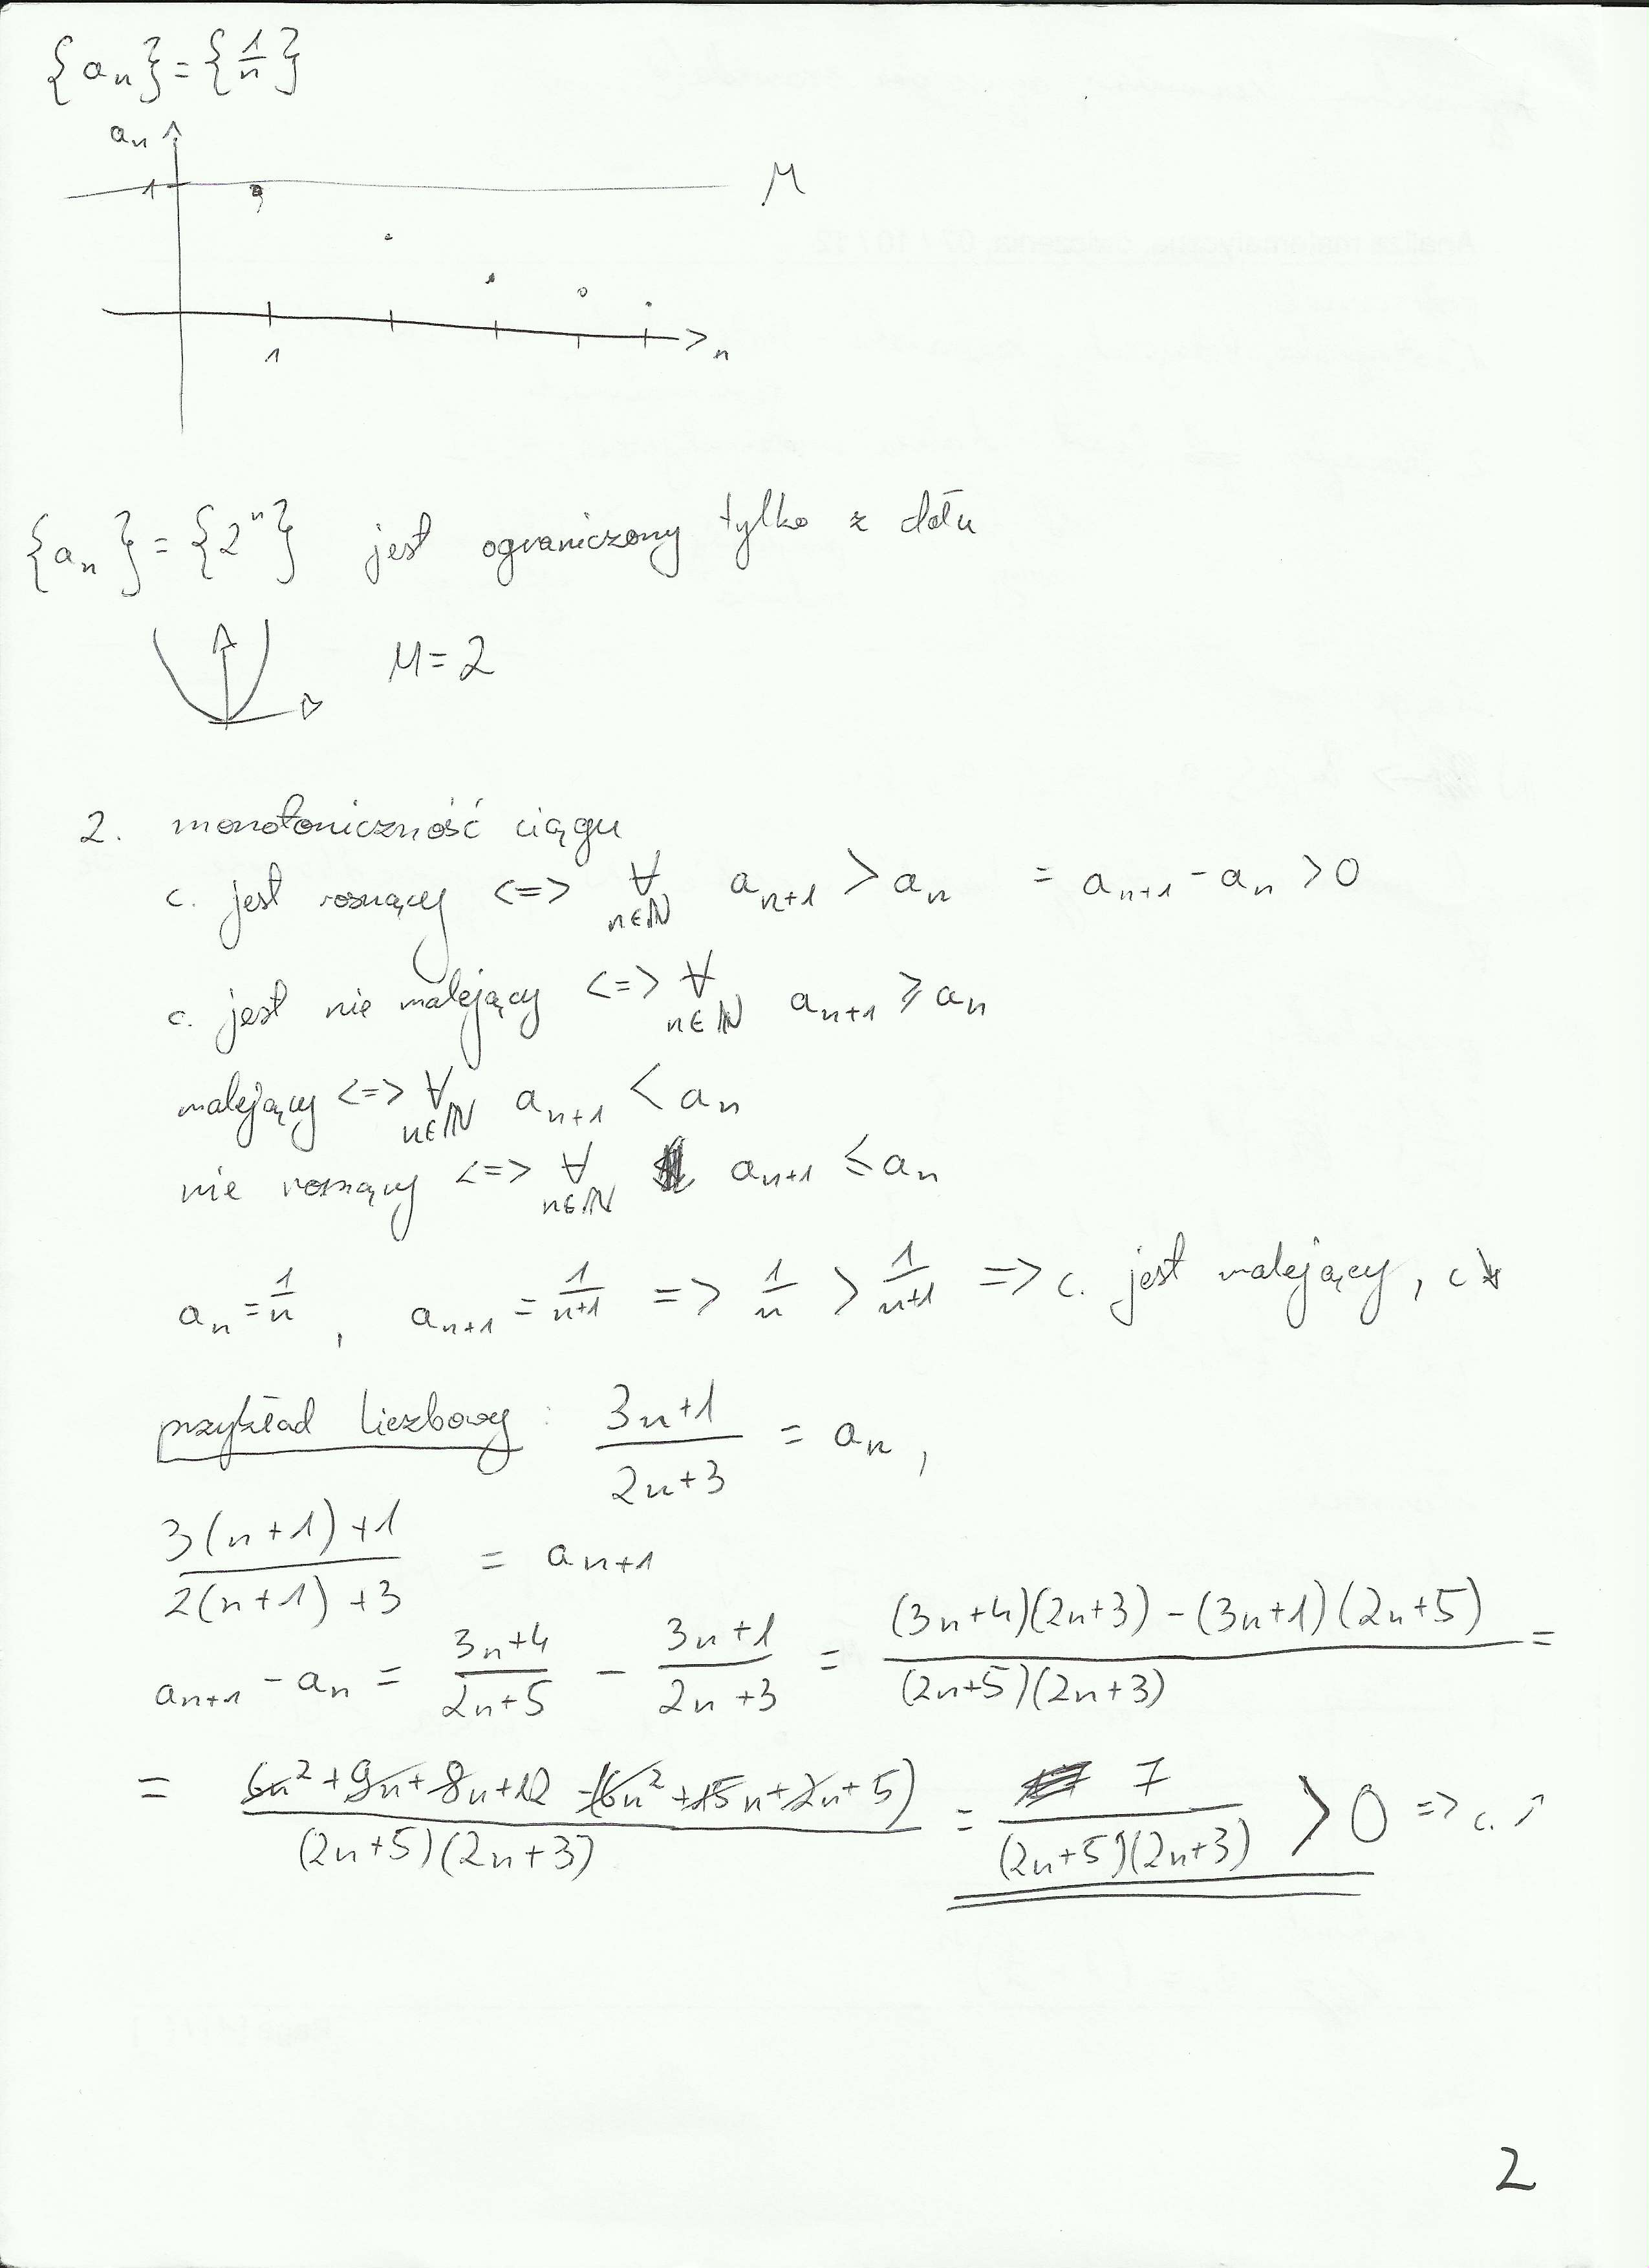 {a_n} = {1/n}
a_n
1 M
1 n
{a_n} = {2^n} jest ograniczony tylko z dołu
M = 2
2. monotoniczność ciągu
c. jest rosnący <=> ∀ n∈ℕ a_{n+1} > a_n = a_{n+1} - a_n > 0
c. jest nie malejący <=> ∀ n∈ℕ a_{n+1} ≥ a_n
malejący <=> ∀ n∈ℕ a_{n+1} < a_n
nie rosnący <=> ∀ n∈ℕ a_{n+1} ≤ a_n
a_n = 1/n , a_{n+1} = 1/(n+1) => 1/n > 1/(n+1) => c. jest malejący, c ↘
przykład liczbowy : (3n+1)/(2n+3) = a_n ,
(3(n+1)+1)/(2(n+1)+3) = a_{n+1}
a_{n+1} - a_n = (3n+4)/(2n+5) - (3n+1)/(2n+3) = ((3n+4)(2n+3) - (3n+1)(2n+5))/((2n+5)(2n+3)) =
= (6n² + 9n + 8n + 12 - (6n² + 15n + 2n + 5))/((2n+5)(2n+3)) = 7/((2n+5)(2n+3)) > 0 => c. ↗
2